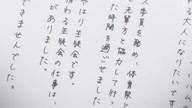 る人になりたいで
員を務め、体育祭
先輩方と協力して行
た時間を過ごせました。
やはり生徒会です。
わる生徒会の仕事は
がありました。
きませんでした。